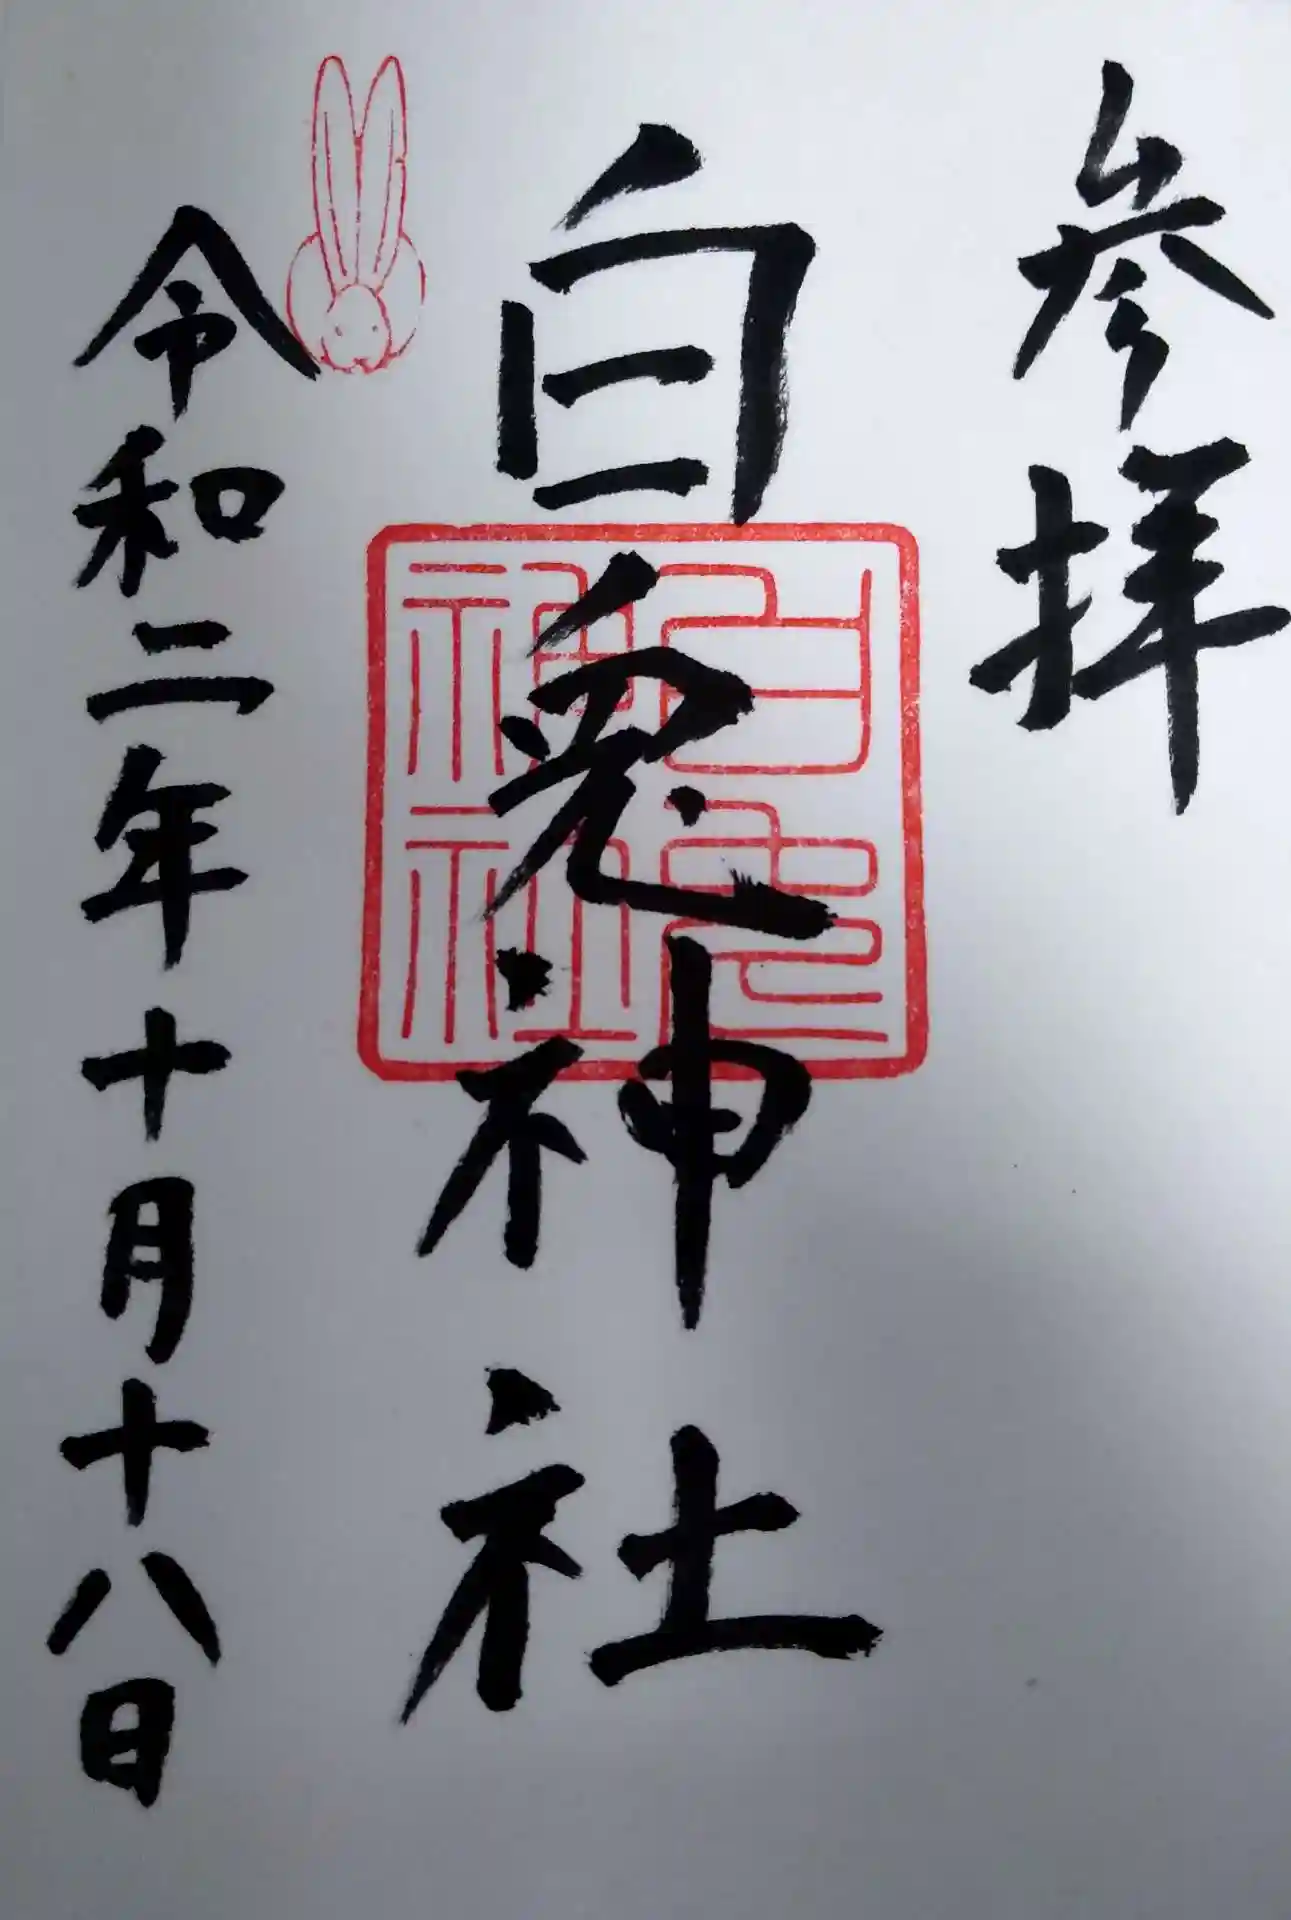 参拝
白兔神社
白兔神社
令和二年十月十八日